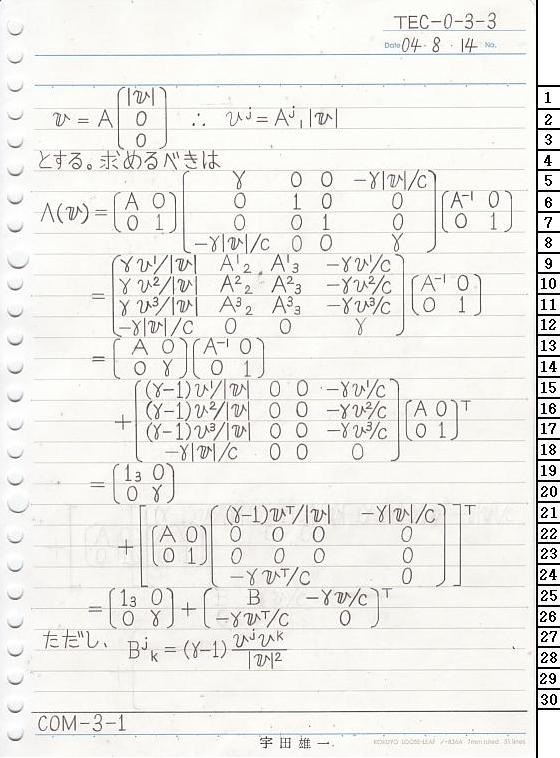 TEC-0-3-3
Date 04・8・14 No.
𝕧 = A (|𝕧| 0 0) ∴ υʲ = Aʲ₁|𝕧|
とする。求めるべきは
Λ(𝕧) = (A 0 / 0 1) (γ 0 0 -γ|𝕧|/c / 0 1 0 0 / 0 0 1 0 / -γ|𝕧|/c 0 0 γ) (A⁻¹ 0 / 0 1)
= (γυ¹/|𝕧| A¹₂ A¹₃ -γυ¹/c / γυ²/|𝕧| A²₂ A²₃ -γυ²/c / γυ³/|𝕧| A³₂ A³₃ -γυ³/c / -γ|𝕧|/c 0 0 γ) (A⁻¹ 0 / 0 1)
= (A 0 / 0 γ) (A⁻¹ 0 / 0 1)
+ ((γ-1)υ¹/|𝕧| 0 0 -γυ¹/c / (γ-1)υ²/|𝕧| 0 0 -γυ²/c / (γ-1)υ³/|𝕧| 0 0 -γυ³/c / -γ|𝕧|/c 0 0 0) (A 0 / 0 1)ᵀ
= (1₃ 0 / 0 γ)
+ [(A 0 / 0 1) ((γ-1)𝕧ᵀ/|𝕧| -γ|𝕧|/c / 0 0 0 0 / 0 0 0 0 / -γ𝕧ᵀ/c 0)]ᵀ
= (1₃ 0 / 0 γ) + (B -γ𝕧/c / -γ𝕧ᵀ/c 0)ᵀ
ただし、 Bʲₖ = (γ-1) υʲυᵏ/|𝕧|²
COM-3-1
宇田雄一
KOKUYO LOOSE-LEAF ノ-836A 7mm ruled 31 lines
1
2
3
4
5
6
7
8
9
10
11
12
13
14
15
16
17
18
19
20
21
22
23
24
25
26
27
28
29
30